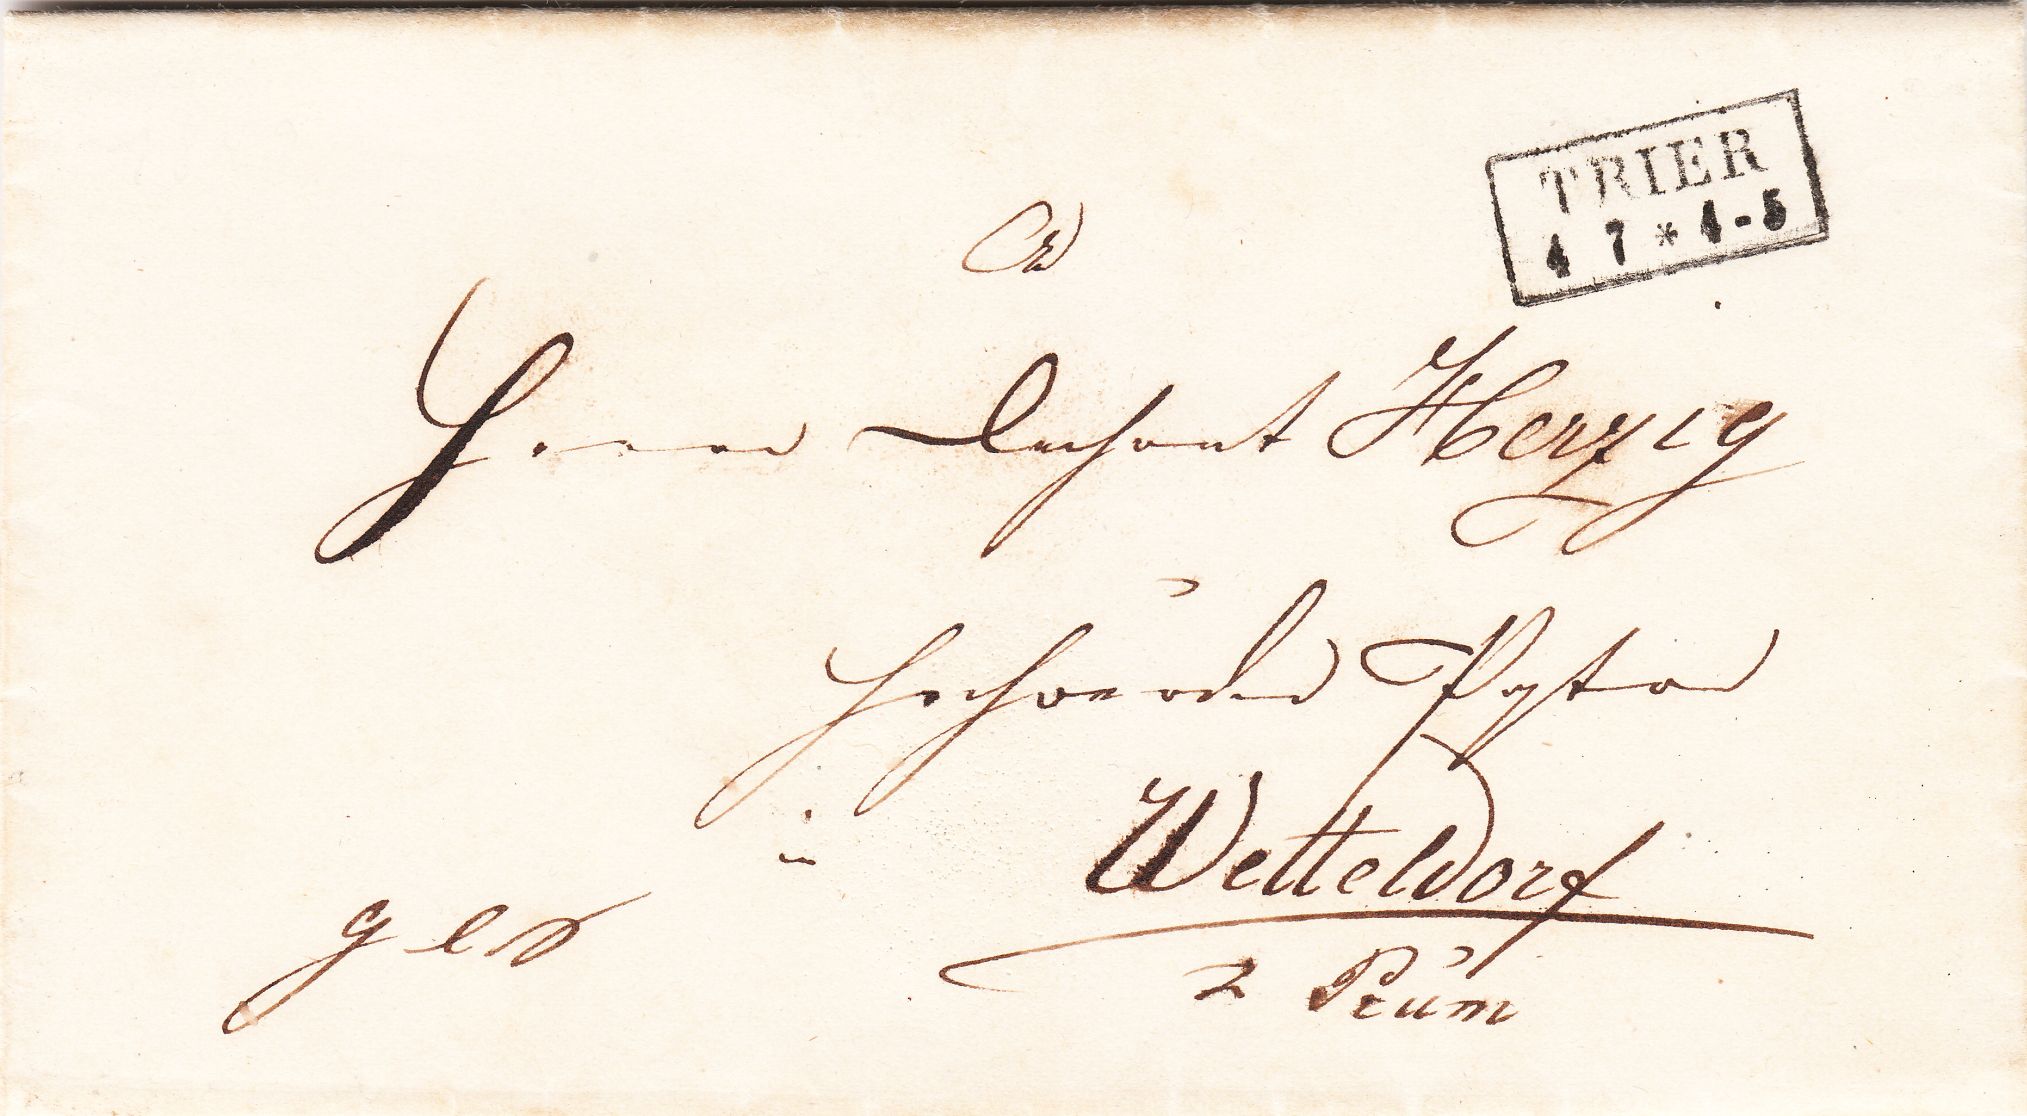 TRIER
4 7 * 4-5
Herrn Dechant Herzig
Hochwürden
in Wetteldorf
z Prüm